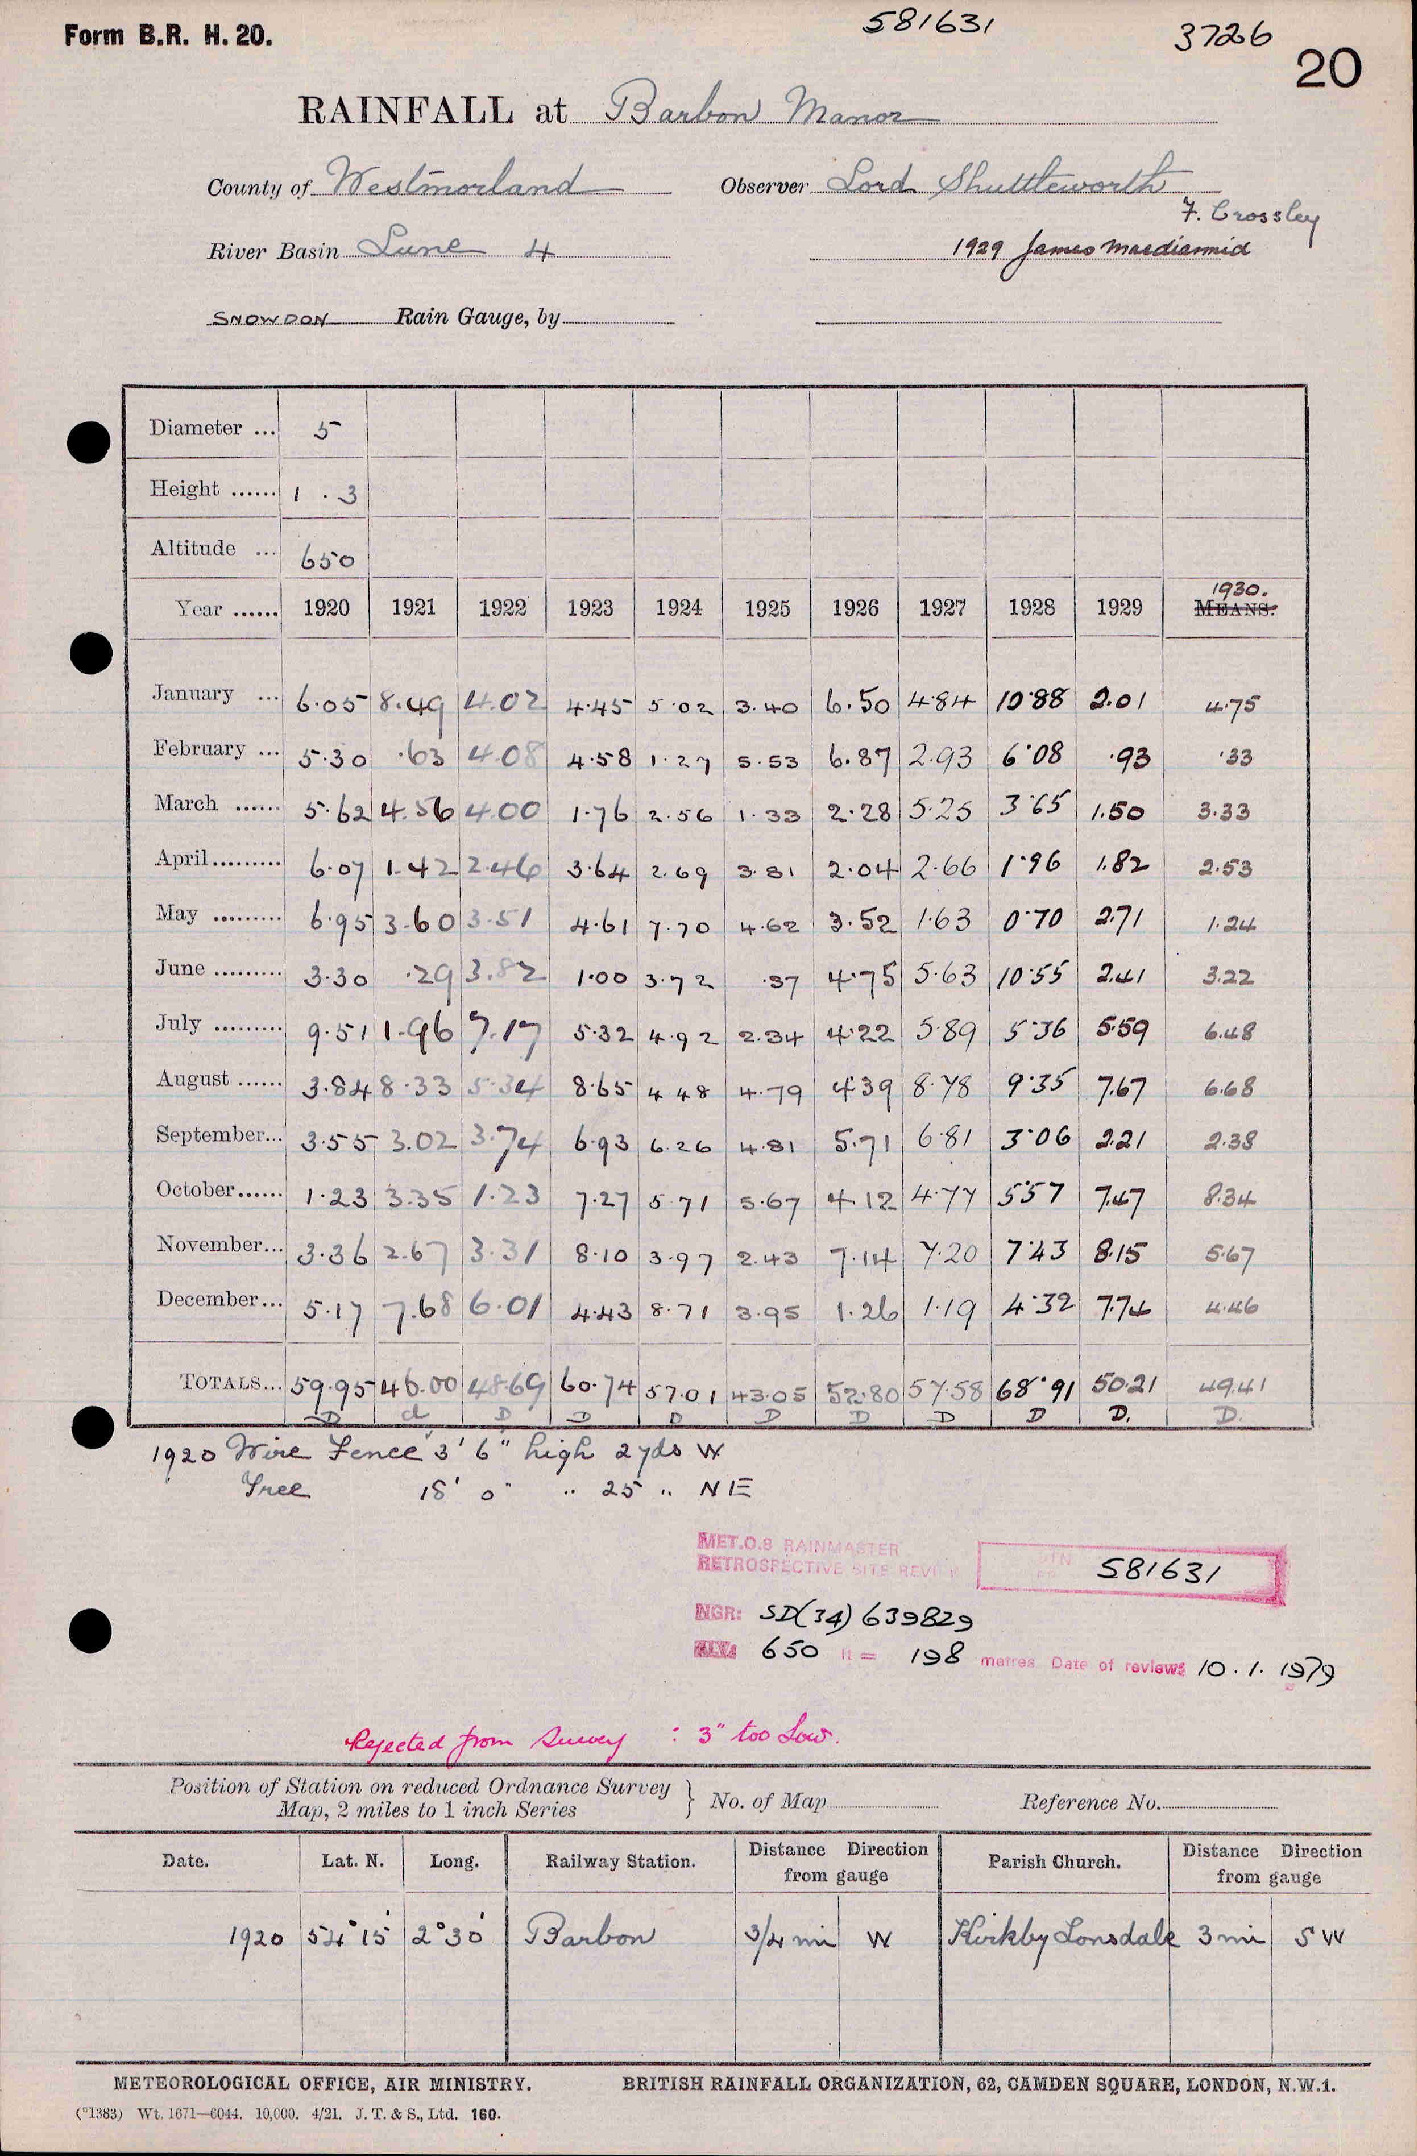 Form B.R. H. 20.
581631
3726
20
RAINFALL at Barbon Manor
County of Westmorland Observer Lord Shuttleworth
F. Crossley
River Basin Lune 4 1929 James Macdiarmid
SNOWDON Rain Gauge, by
Diameter ... 5
Height ...... 1 . 3
Altitude ... 650
1930.
Year ...... 1920 1921 1922 1923 1924 1925 1926 1927 1928 1929 MEANS.
January ... 6.05 8.49 4.02 4.45 5.02 3.40 6.50 4.84 10.88 2.01 4.75
February ... 5.30 .63 4.08 4.58 1.27 5.53 6.87 2.93 6.08 .93 .33
March ...... 5.62 4.56 4.00 1.76 2.56 1.33 2.28 5.25 3.65 1.50 3.33
April ......... 6.07 1.42 2.46 3.64 2.69 3.81 2.04 2.66 1.96 1.82 2.53
May ......... 6.95 3.60 3.51 4.61 7.70 4.62 3.52 1.63 0.70 2.71 1.24
June ......... 3.30 .29 3.82 1.00 3.72 .37 4.75 5.63 10.55 2.41 3.22
July ......... 9.51 1.96 7.17 5.32 4.92 2.34 4.22 5.89 5.36 5.59 6.48
August ...... 3.84 8.33 5.34 8.65 4.48 4.79 4.39 8.78 9.35 7.67 6.68
September... 3.55 3.02 3.74 6.93 6.26 4.81 5.71 6.81 3.06 2.21 2.38
October...... 1.23 3.35 1.23 7.27 5.71 5.67 4.12 4.77 5.57 7.47 8.34
November... 3.36 2.67 3.31 8.10 3.97 2.43 7.14 7.20 7.43 8.15 5.67
December... 5.17 7.68 6.01 4.43 8.71 3.95 1.26 1.19 4.32 7.74 4.46
TOTALS... 59.95 46.00 48.69 60.74 57.01 43.05 52.80 57.58 68.91 50.21 49.41
D d D D D D D D D D. D.
1920 Wire Fence 3' 6" high 2 yds W
Tree 18' 0" " 25 " NE
MET.O.8 RAINMASTER
RETROSPECTIVE SITE REVIEW
STN 581631
NGR: SD(34) 639829
ELV: 650 ft = 198 metres Date of review: 10.1.1979
Rejected from Survey : 3" too Low.
Position of Station on reduced Ordnance Survey
Map, 2 miles to 1 inch Series } No. of Map Reference No.
Date. Lat. N. Long. Railway Station. Distance Direction from gauge Parish Church. Distance Direction from gauge
1920 54°15' 2°30' Barbon 3/4 mi W Kirkby Lonsdale 3 mi SW
METEOROLOGICAL OFFICE, AIR MINISTRY. BRITISH RAINFALL ORGANIZATION, 62, CAMDEN SQUARE, LONDON, N.W.1.
(*1383) Wt. 1671—6044. 10,000. 4/21. J. T. & S., Ltd. 160.